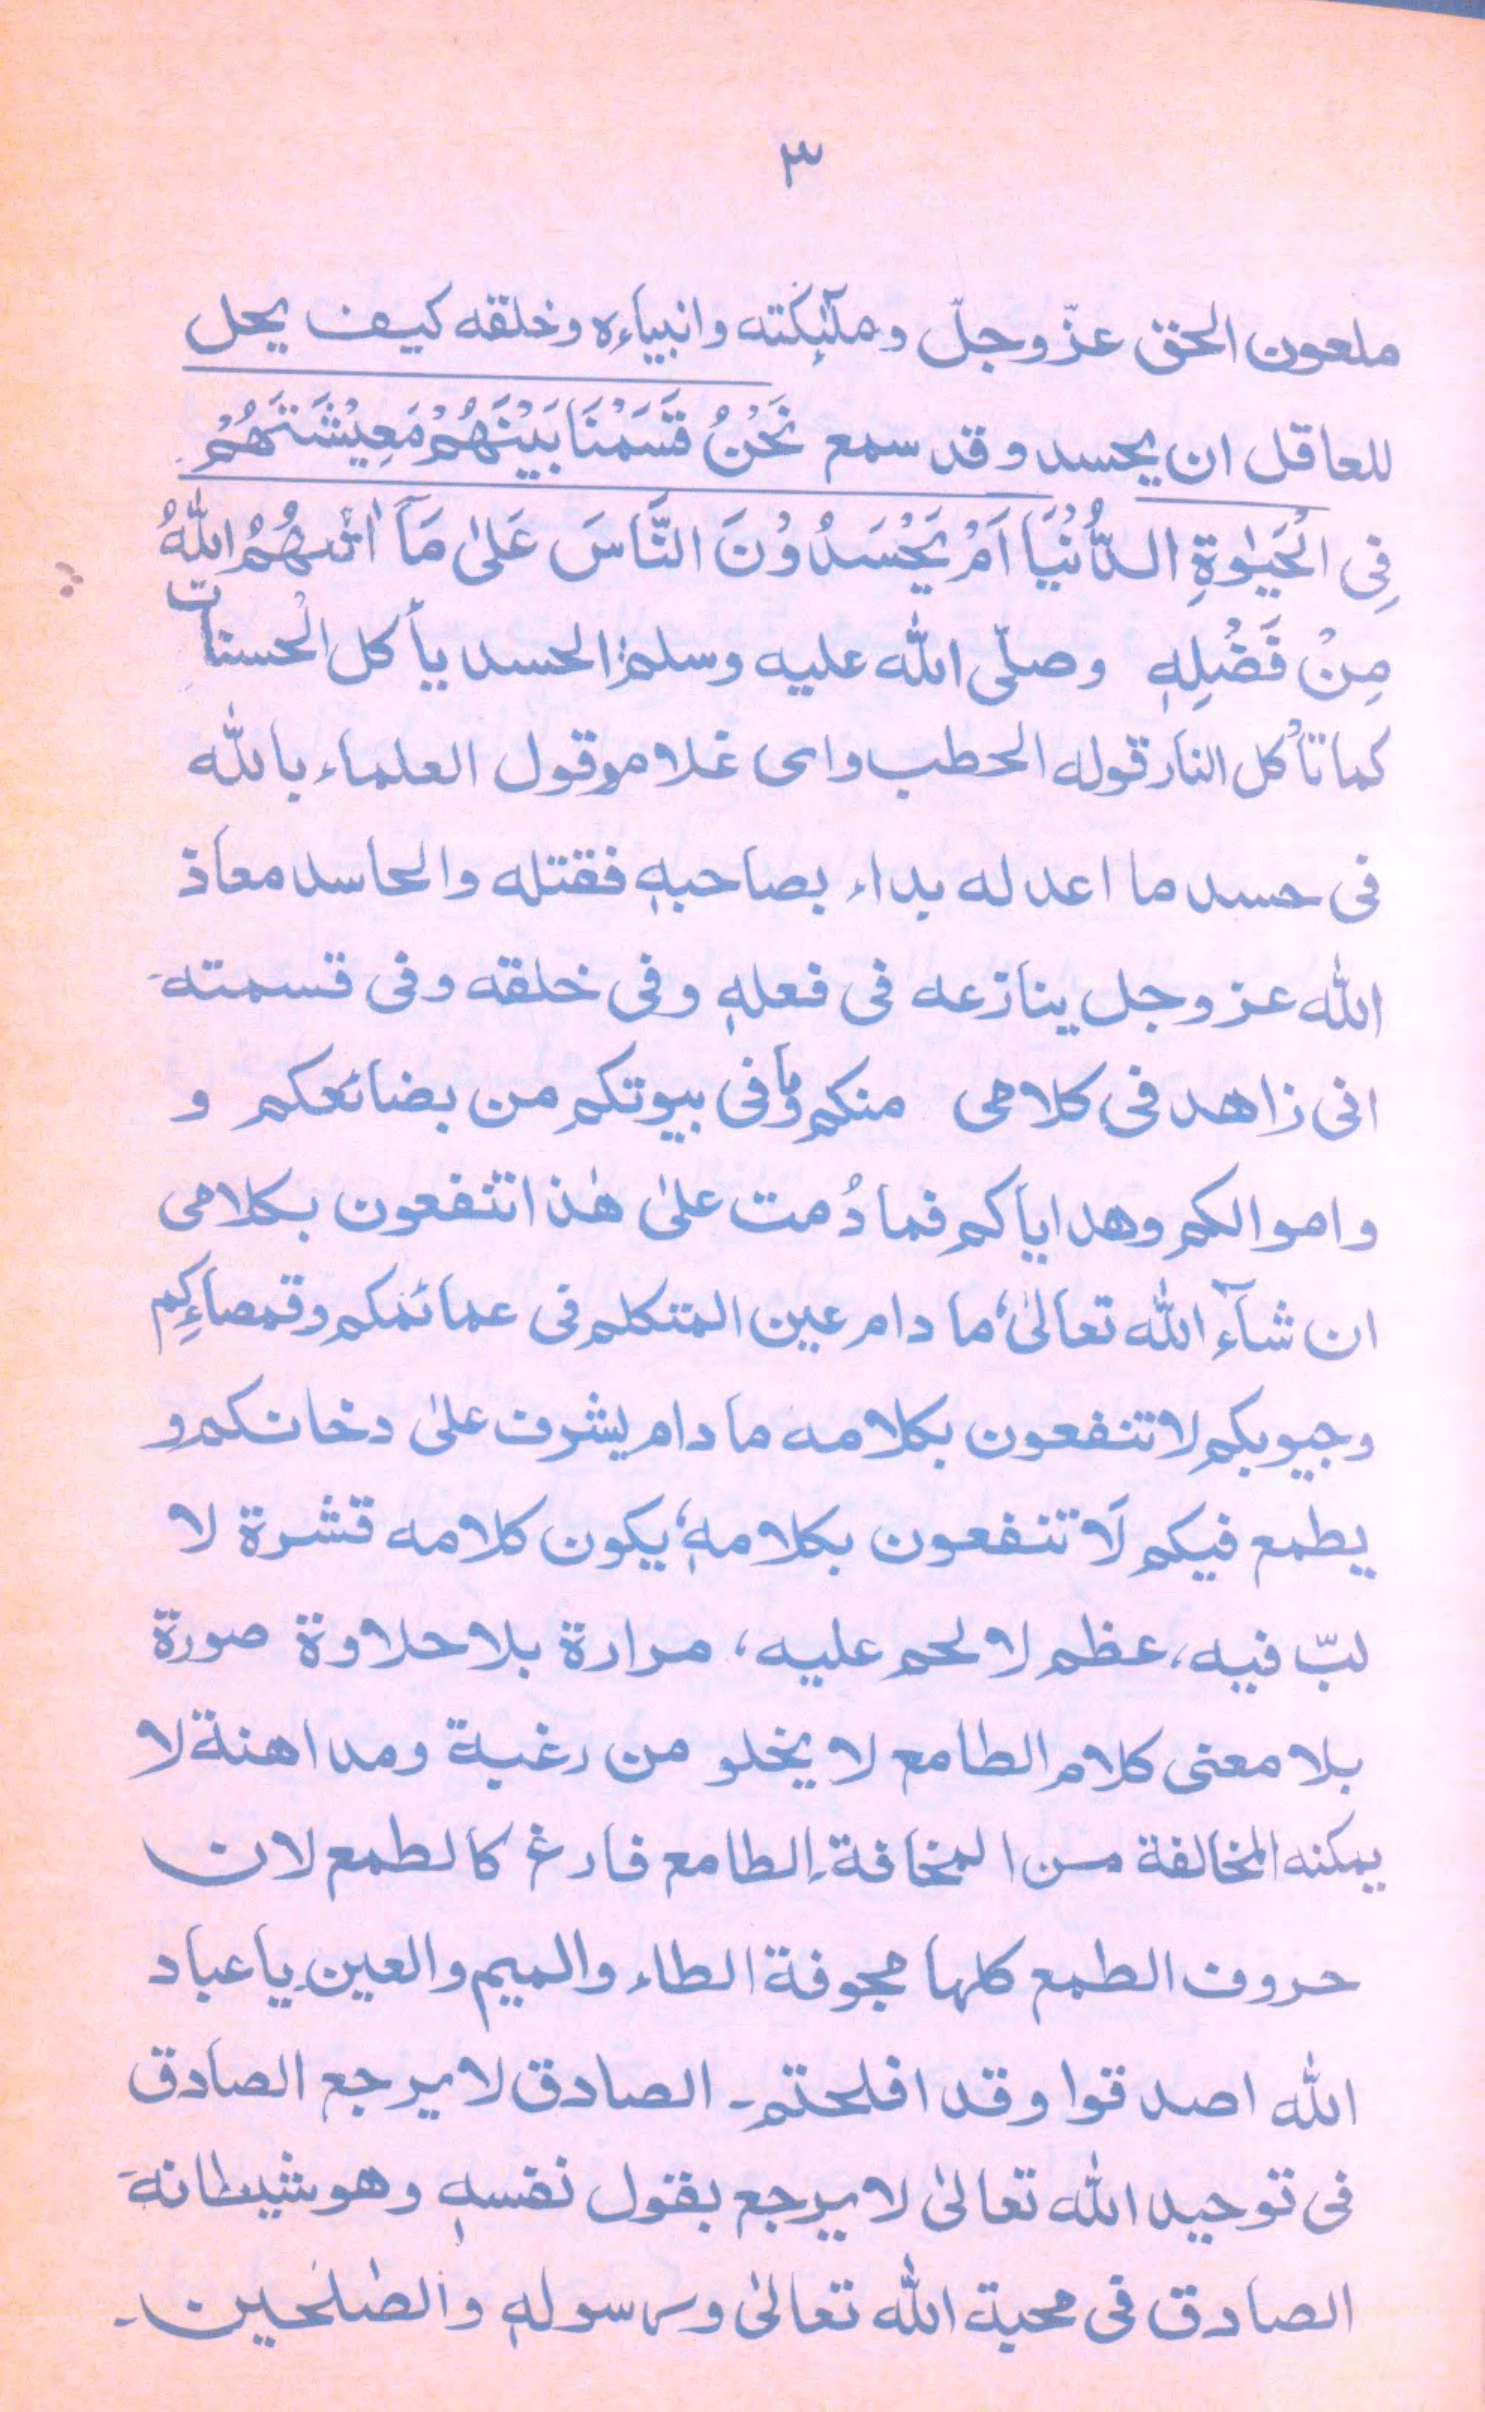 ٣
ملعون الحق عزّ وجلّ وملٰٓئِکته وانبیاءِہ وخلقه کیف یحل
للعاقل ان یحسد وقد سمع نَحْنُ قَسَمْنَا بَیْنَهُمْ مَعِیْشَتَهُمْ
فِی الْحَیٰوةِ الدُّنْیَا اَمْ یَحْسَدُوْنَ النَّاسَ عَلٰی مَآ اٰتٰىهُمُ اللّٰهُ
مِنْ فَضْلِهٖ وصلّی اللّٰه علیه وسلم الحسد یأکل الحسنات
کما تأکل النار قوله الحطب وای غلام وقول العلماء باللّٰه
فی حسد ما اعدله بداء بصاحبهٖ فقتله والحاسد معاذ
اللّٰه عز وجل ینازعه فی فعلهٖ وفی خلقه وفی قسمته
انی زاهد فی کلامی منکم وما فی بیوتکم من بضائعکم و
واموالکم وهدایاکم فما دُمت علیٰ هٰذا تنفعون بکلامی
ان شآءَ اللّٰه تعالیٰ، ما دام عین المتکلم فی عمائمکم وقمصاءِکم
وجیوبکم لا تنفعون بکلامه ما دام یشرف علیٰ دخانکم و
یطمع فیکم لَا تنفعون بکلامهٖ، یکون کلامه قشرة لا
لبّ فیه، عظم لا لحم علیه، مرارة بلا حلاوة صورة
بلا معنی کلام الطامع لا یخلو من رغبة ومداهنة لا
یمکنه المخالفة من المخافة۔ الطامع فارغ کالطمع لان
حروف الطمع کلها مجوفة الطاء والمیم والعین۔ یا عباد
اللّٰه اصدقوا وقد افلحتم۔ الصادق لا یرجع الصادق
فی توحید اللّٰه تعالیٰ لا یرجع بقول نفسهٖ وهو شیطانه
الصادق فی محبة اللّٰه تعالیٰ ورسولهٖ والصٰلحین۔